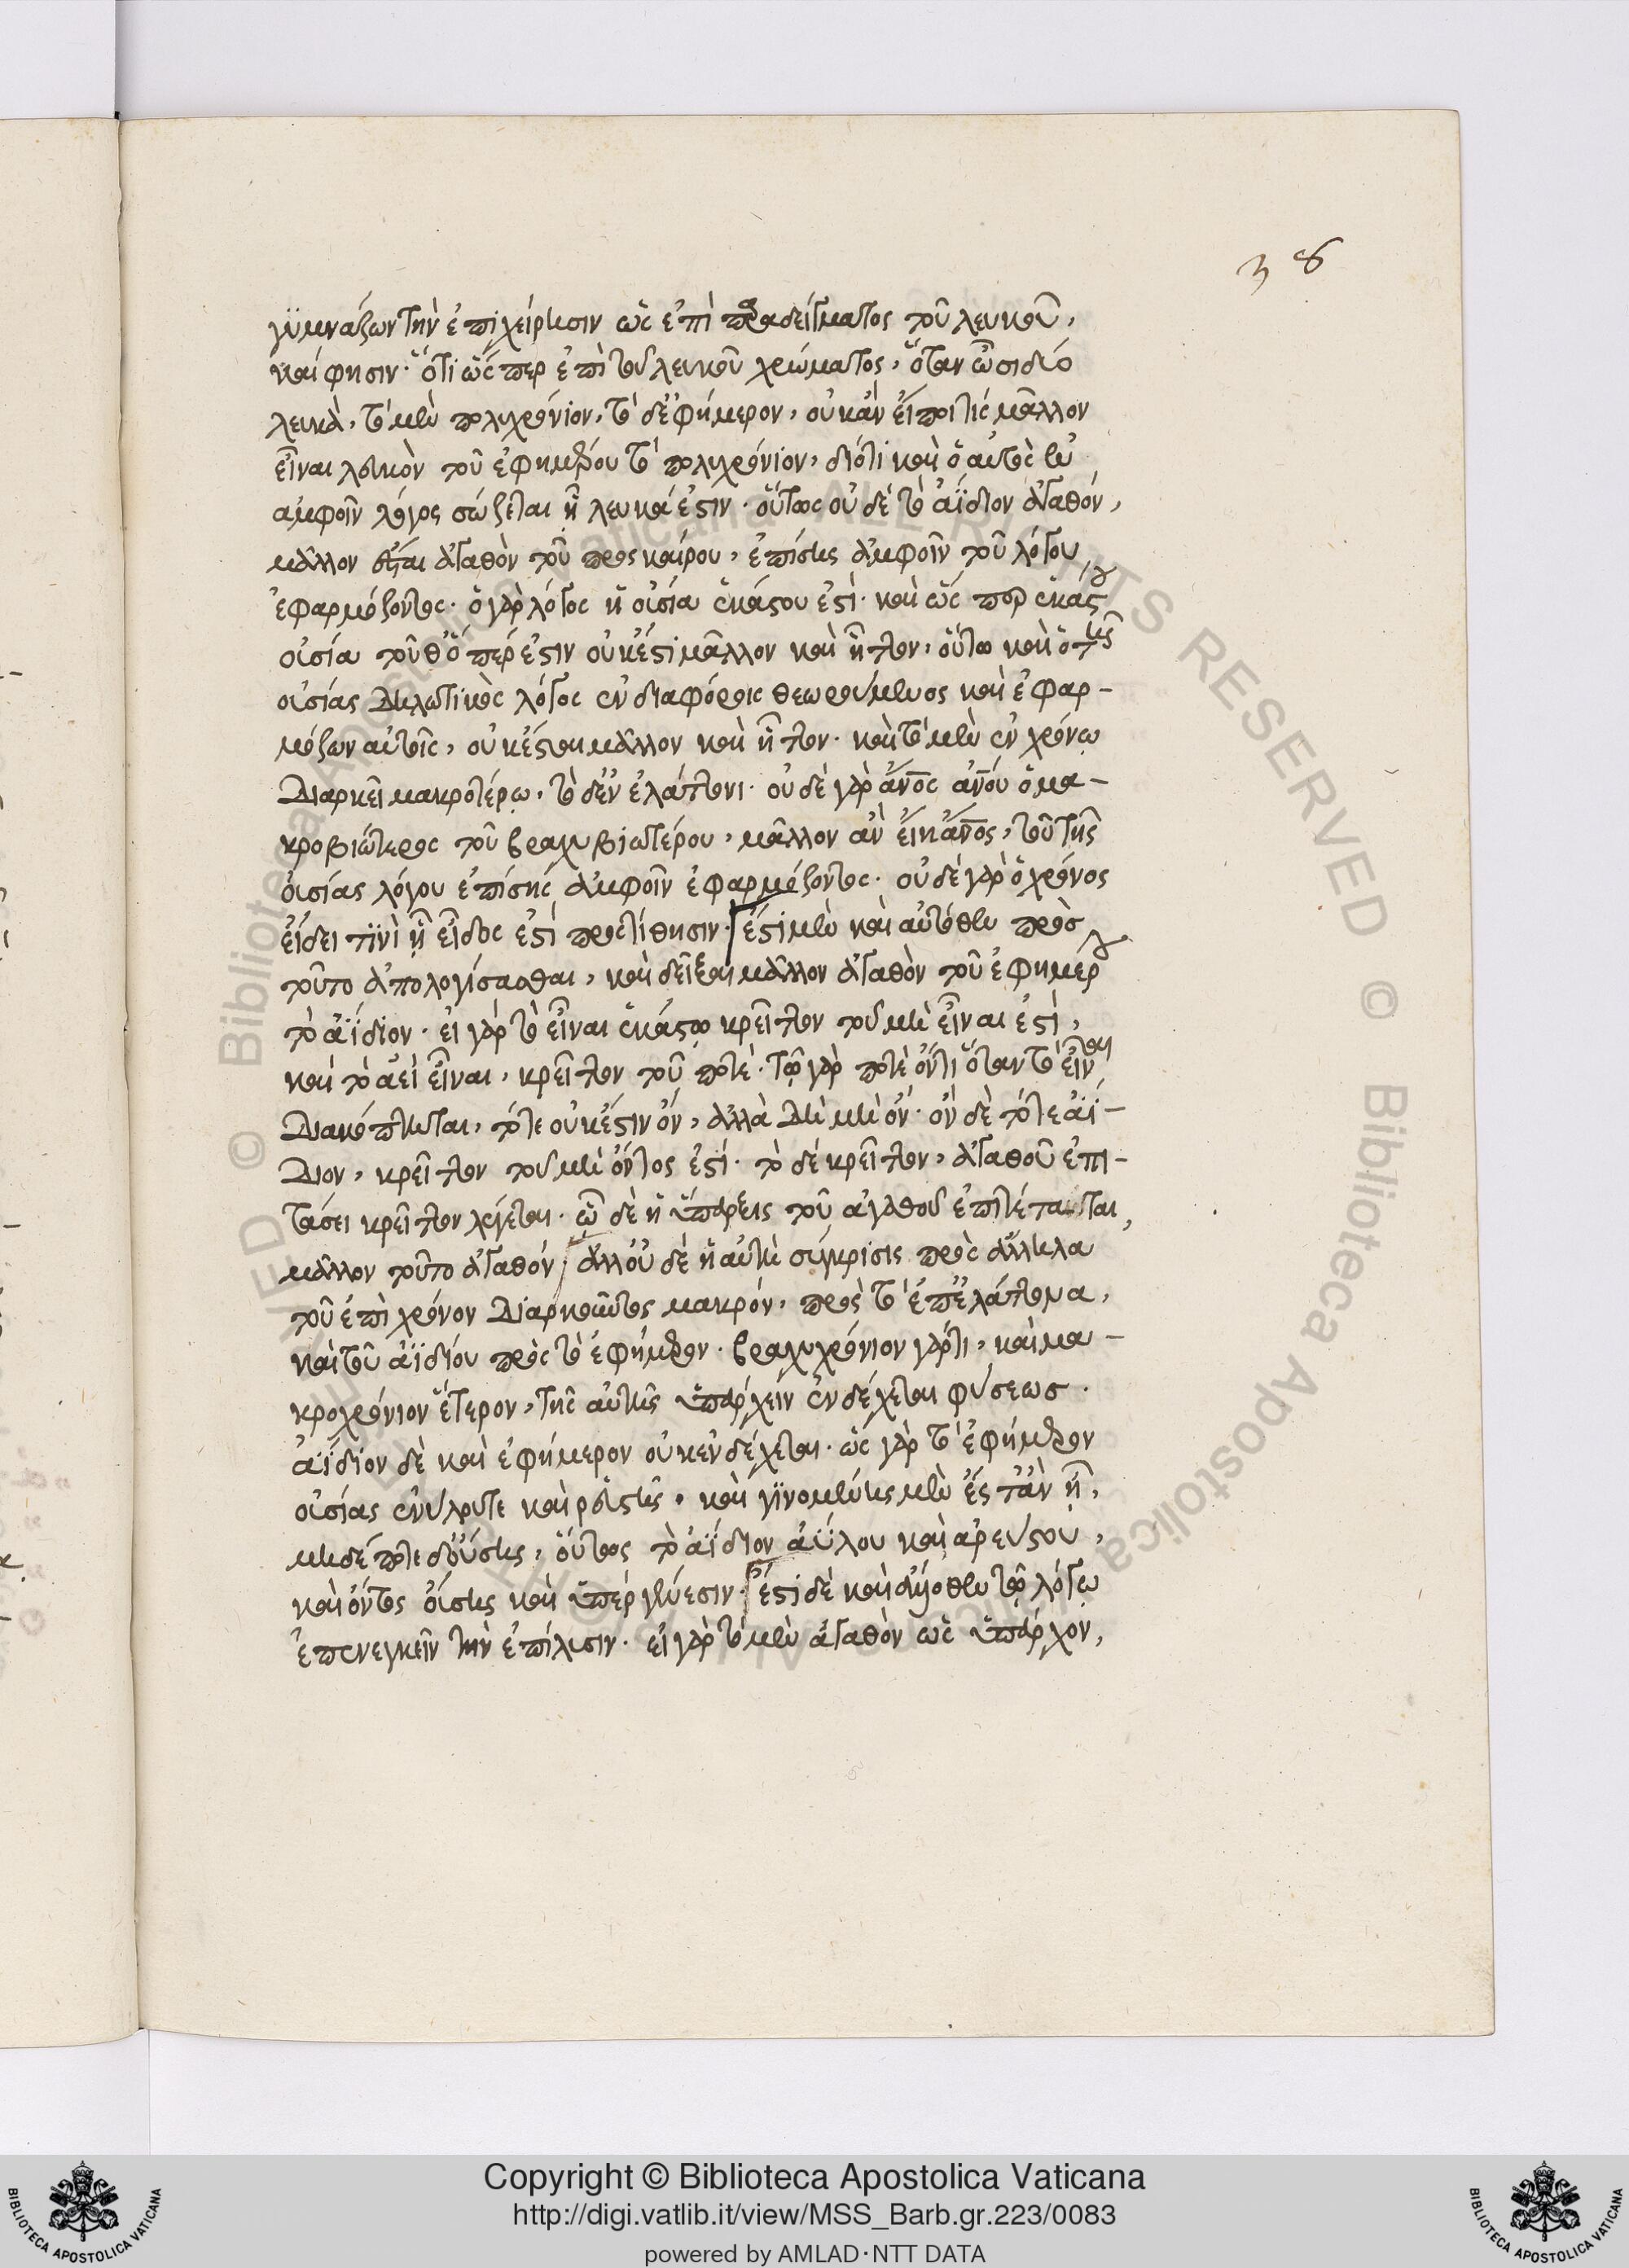 38
γυμνάζων τὴν ἐπιχείρησιν ὡς ἐπὶ παραδείγματος τοῦ λευκοῦ,
καί φησιν· ὅτι ὥσπερ ἐπὶ τοῦ λευκοῦ χρώματος, ὅταν ὦσι δύο
λευκὰ, τὸ μὲν πολυχρόνιον, τὸ δ' ἐφήμερον, οὐκ ἂν εἴποι τίς μᾶλλον
εἶναι λευκὸν τοῦ ἐφημέρου τὸ πολυχρόνιον, διότι καὶ ὁ αὐτὸς ἐν
ἀμφοῖν λόγος σώζεται ᾗ λευκά ἐστιν· οὕτως οὐδὲ τὸ ἀΐδιον ἀγαθόν,
μᾶλλον ἀγαθὸν τοῦ προσκαίρου, ἐπίσης ἀμφοῖν τοῦ λόγου
ἐφαρμόζοντος· ὁ γὰρ λόγος ἡ οὐσία ἑκάστου ἐστὶ· καὶ ὥσπερ ἑκάστου
οὐσία τοῦθ' ὅπερ ἐστιν οὐκ ἔστι μᾶλλον καὶ ἧττον, οὕτω καὶ ὁ τῆς
οὐσίας δηλωτικὸς λόγος ἐν διαφόροις θεωρούμενος καὶ ἐφαρ-
μόζων αὐτοῖς, οὐκ ἔσται μᾶλλον καὶ ἧττον· κἂν τὸ μὲν ἐν χρόνῳ
διαρκεῖ μακροτέρῳ, τὸ δ' ἐν ἐλάττονι· οὐδὲ γὰρ ἄνος ἀνου ὁ μα-
κροβιώτερος τοῦ βραχυβιωτέρου, μᾶλλον ἂν εἴη ἄνος, τοῦ τῆς
οὐσίας λόγου ἐπίσης ἀμφοῖν ἐφαρμόζοντος· οὐδὲ γὰρ ὁ χρόνος
εἴδει τινὶ ᾗ εἶδος ἐστὶ προστίθησιν· ἔστι μὲν καὶ αὐτόθεν πρὸς
τοῦτο ἀπολογίσασθαι, καὶ δεῖξαι μᾶλλον ἀγαθὸν τοῦ ἐφημέρου
τὸ ἀΐδιον· εἰ γὰρ τὸ εἶναι ἑκάστῳ κρεῖττον τοῦ μὴ εἶναι ἐστὶ,
καὶ τὸ ἀεὶ εἶναι, κρεῖττον τοῦ ποτέ· τῷ γὰρ ποτὲ ὄντι ὅταν τὸ εἶναι
διακόπτηται, τότε οὐκ ἔστιν ὄν, ἀλλὰ δὴ μὴ ὄν· ὂν δὲ τότε ἀΐ-
διον, κρεῖττον τοῦ μὴ ὄντος ἐστί· τὸ δὲ κρεῖττον, ἀγαθοῦ ἐπι-
τάσει κρεῖττον λέγεται· ᾧ δὲ ἡ ὕπαρξις τοῦ ἀγαθοῦ ἐπιτέταται,
μᾶλλον τοῦτο ἀγαθόν· ἀλλ' οὐδὲ ἡ αὐτὴ σύγκρισις πρὸς ἄλληλα
τοῦ ἐπὶ χρόνον διαρκοῦντος μακρόν, πρὸς τὸ ἐπ' ἔλαττον μα,
καὶ τοῦ ἀϊδίου πρὸς τὸ ἐφήμερον· βραχυχρόνιον γάρ τι, καὶ μα-
κροχρόνιον ἕτερον, τῆς αὐτῆς ὑπάρχειν ἐνδέχεται φύσεως·
ἀΐδιον δὲ καὶ ἐφήμερον οὐκ ἐνδέχεται· ὡς γὰρ τὸ ἐφήμερον
οὐσίας ἐνύλου τε καὶ ῥευστῆς, καὶ γινομένης μὲν ἔστ' ἂν ᾖ,
μηδέποτε δ' οὔσης, οὕτως τὸ ἀΐδιον ἀΰλου καὶ ἀρεύστου,
καὶ ὄντος οὔσης καὶ ὑπὲρ γένεσιν· ἔστι δὲ καὶ ἄλλοθεν τῷ λόγῳ
ἐπενεγκεῖν τὴν ἐπίλυσιν· εἰ γὰρ τὸ μὲν ἀγαθὸν ὡς ὑπάρχον,
Copyright © Biblioteca Apostolica Vaticana
http://digi.vatlib.it/view/MSS_Barb.gr.223/0083
powered by AMLAD·NTT DATA